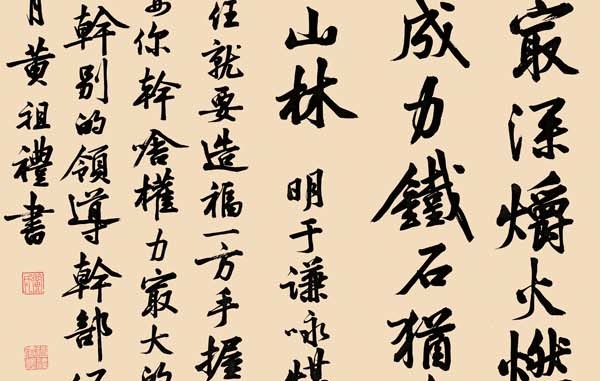 最深爝火燃
成力鐵石猶
山林 明于謙咏煤
任就要造福一方手握
要你幹啥權力最大的
幹别的領導幹部
月黄祖禮書